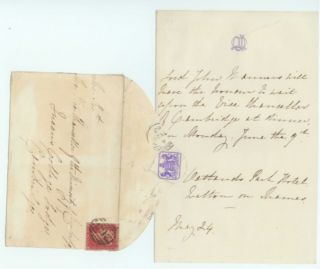 Lord John Manners will
have the honour to wait
upon the Vice Chancellor
of Cambridge at dinner
on Monday June the 9th
Oatlands Park Hotel
Walton on Thames
May 24
The Vice Chancellor
Queens College Lodge
Cambridge